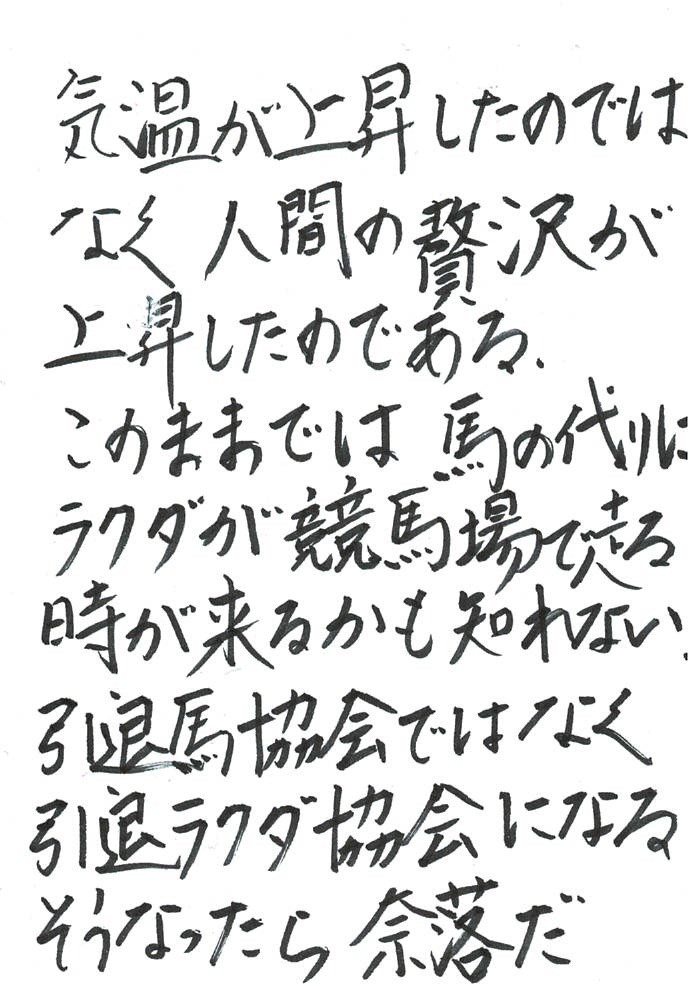 気温が上昇したのでは
なく 人間の贅沢が
上昇したのである、
このままでは 馬の代りに
ラクダが競馬場で走る
時が来るかも知れない、
引退馬協会ではなく
引退ラクダ協会になる
そうなったら 奈落だ